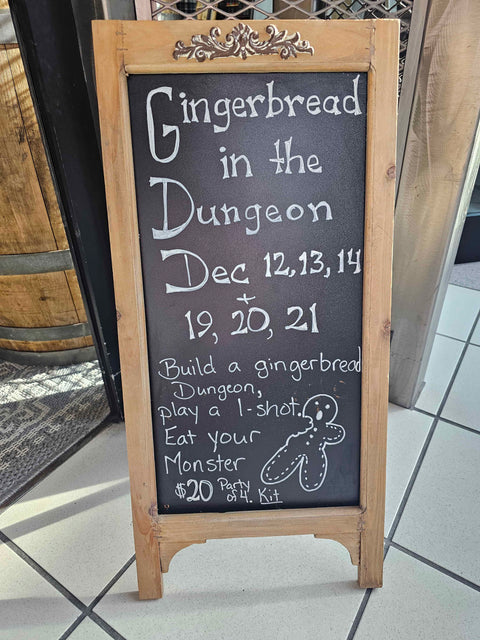 Gingerbread
in the
Dungeon
Dec 12, 13, 14
+
19, 20, 21
Build a gingerbread
Dungeon,
play a 1-shot.
Eat your
Monster
$20 Party of 4. Kit